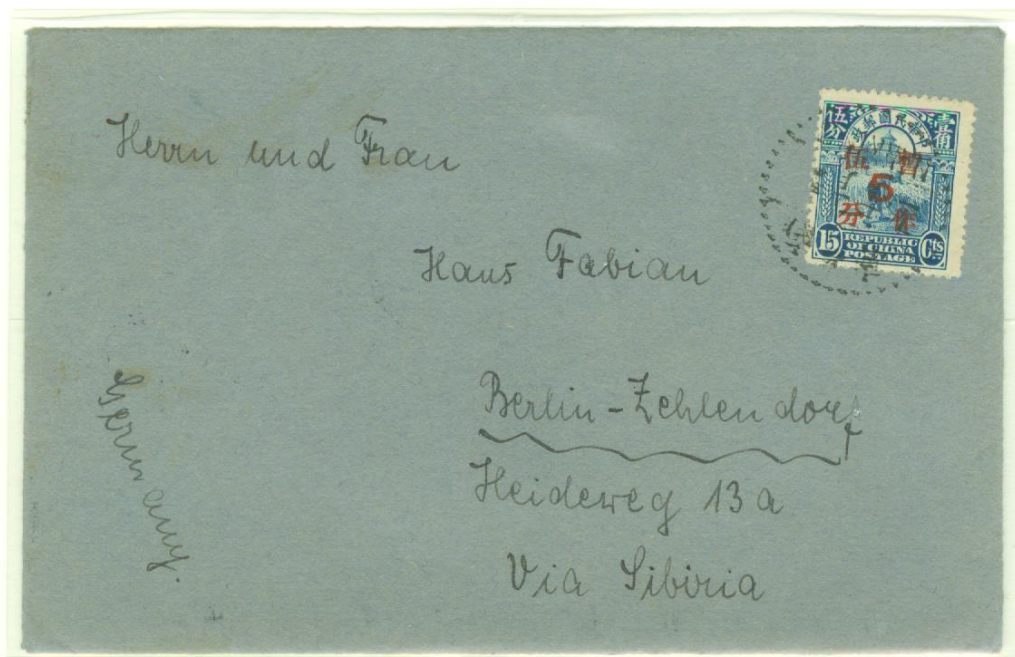 Herrn und Frau
Hans Fabian
Berlin-Zehlendorf
Heideweg 13a
Via Sibiria
Germany.
伍分 中華民國郵政 壹角
伍 暫
5
分 作
15 REPUBLIC OF CHINA POSTAGE Cts